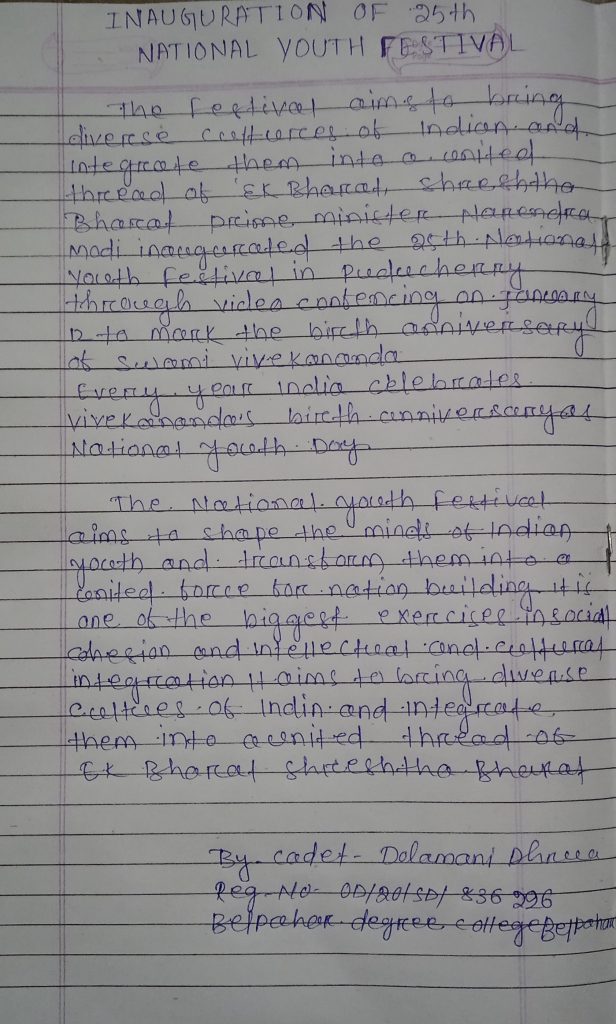 INAUGURATION OF 25th
NATIONAL YOUTH FESTIVAL
The Festival aims to bring
diverse cultures of Indian and
integrate them into a united
thread of 'EK Bharat, shreshtha
Bharat prime minister Narendra
modi inaugurated the 25th National
youth Festival in puducherry
through video confencing on january
12 to mark the birth anniversary
of swami vivekananda
Every year india celebrates
vivekananda's birth anniversary as
National youth Day
The National youth Festival
aims to shape the minds of Indian
youth and transform them into a
united force for nation building it is
one of the biggest exercises in social
cohesion and intellectual and cultural
integration It aims to bring diverse
cultues of Indin and integrate
them into a united thread of
EK Bharat shreeshtha Bharat
By- cadet- Dolamani
Reg-No- OD/20/SD/ 836 296
Belpahar degree college Belpahar